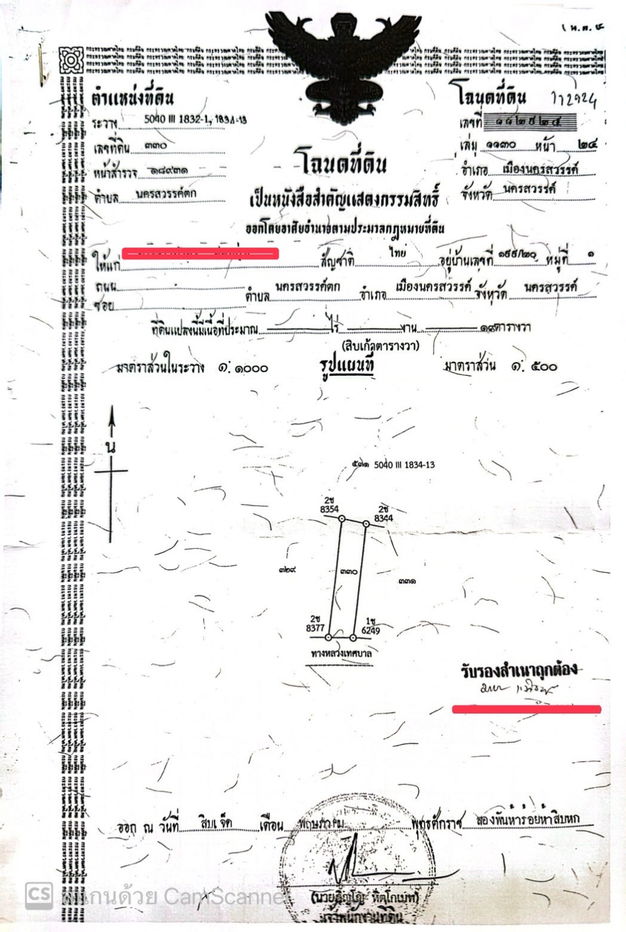 ( น.ส. ๔
ตำแหน่งที่ดิน
ระวาง 5040 III 1832-1, 1834-13
เลขที่ดิน ๓๓๐
หน้าสำรวจ ๑๘๙๓๑
ตำบล นครสวรรค์ตก
โฉนดที่ดิน 112924
เลขที่ ๑๑๒๙๒๔
เล่ม ๑๑๓๐ หน้า ๒๔
อำเภอ เมืองนครสวรรค์
จังหวัด นครสวรรค์
โฉนดที่ดิน
เป็นหนังสือสำคัญแสดงกรรมสิทธิ์
ออกโดยอาศัยอำนาจตามประมวลกฎหมายที่ดิน
ให้แก่ สัญชาติ ไทย อยู่บ้านเลขที่ ๑๕๕/๒๐ หมู่ที่ ๑
ถนน
ซอย ตำบล นครสวรรค์ตก อำเภอ เมืองนครสวรรค์ จังหวัด นครสวรรค์
ที่ดินแปลงนี้มีเนื้อที่ประมาณ ไร่ งาน ๑๙ ตารางวา
(สิบเก้าตารางวา)
มาตราส่วนในระวาง ๑:๑๐๐๐ รูปแผนที่ มาตราส่วน ๑:๕๐๐
น
๕๓๑ 5040 III 1834-13
2ช 8354
2ช 8344
๓๒๙ ๓๓๐ ๓๓๑
2ช 8377
1ช 6249
ทางหลวงเทศบาล
รับรองสำเนาถูกต้อง
ออก ณ วันที่ สิบเจ็ด เดือน พฤษภาคม พุทธศักราช สองพันห้าร้อยห้าสิบหก
เจ้าพนักงานที่ดิน
CS สแกนด้วย CamScanner